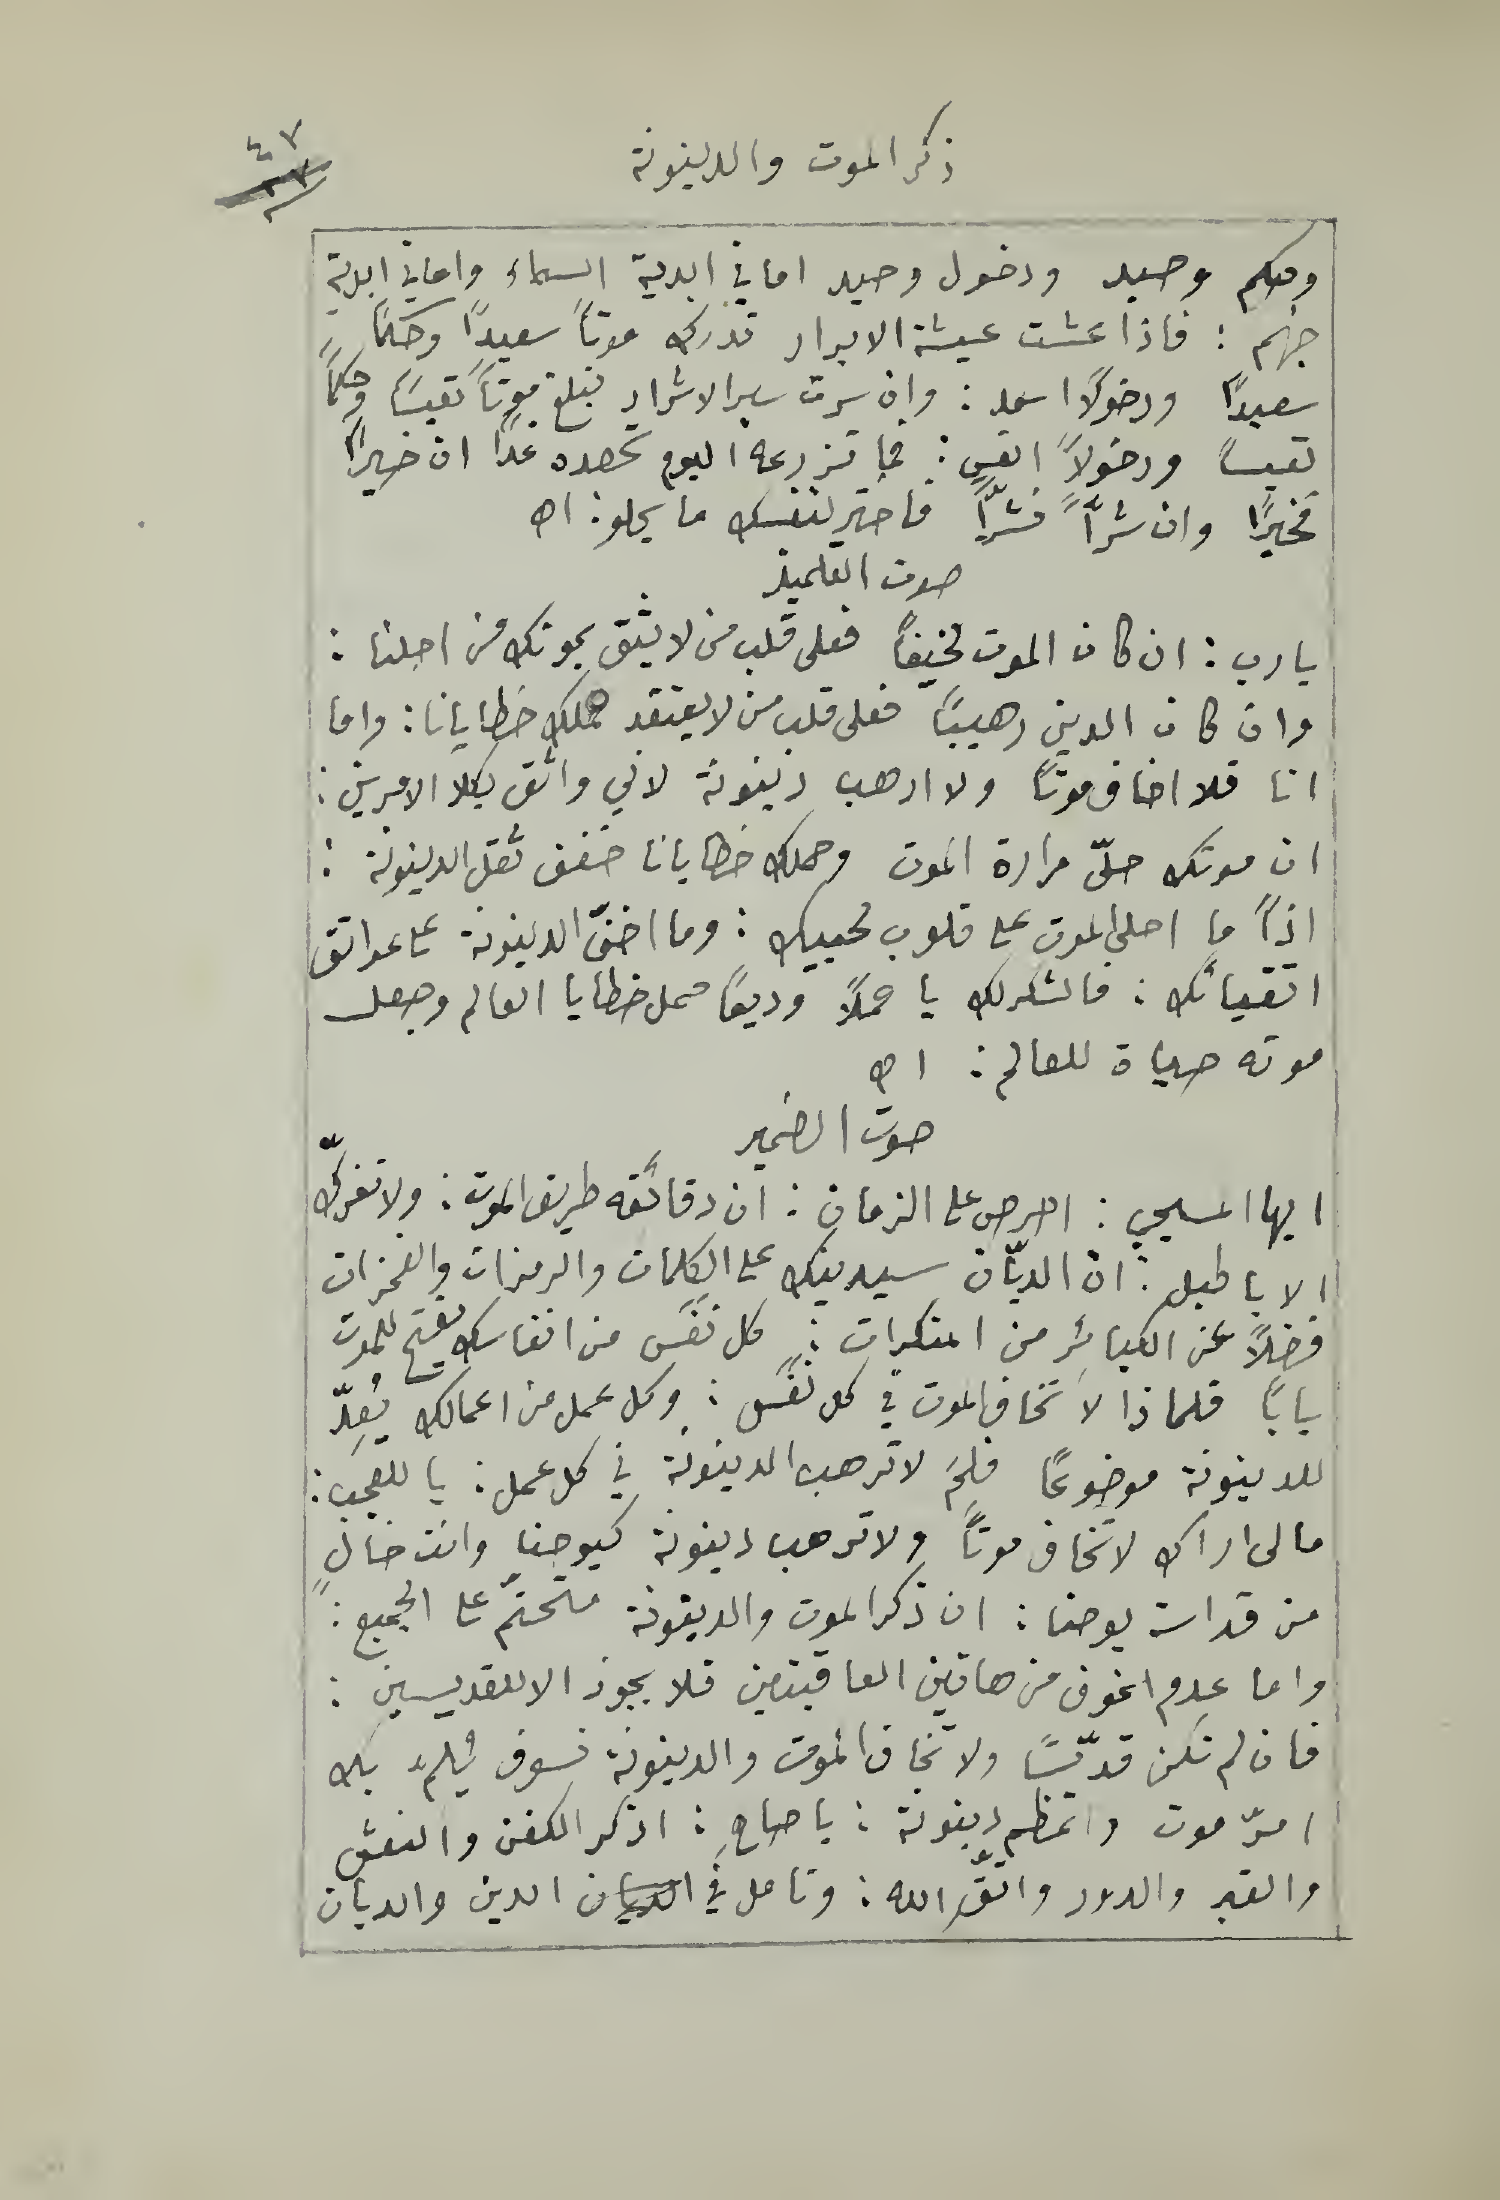 ذكر الموت والدينونة
٤٧
وحكم وحيد ودخول وحيد اما في ابدية السماء واما في ابدية
جهنم : فاذا عشت عيشة الابرار تدرك موتاً سعيداً وحكماً
سعيداً ودخولاً اسعد : وان سرت سير الاشرار تبلغ موتاً تعيساً وحكماً
تعيساً ودخولاً اتعس : فما تزرعه اليوم تحصده غداً ان خيراً
فخيراً وان شراً فشرّاً فاختر لنفسك ما يحلو : اه
صوت التلميذ
يا رب : ان كان الموت مخيفاً فعلى قلب من لا يثق بموتك من اجلنا :
وان كان الدين رهيباً فعلى قلب من لا يعتقد حملك خطايانا : واما
انا فلا اخاف موتاً ولا ارهب دينونة لاني واثق بكلا الامرين :
ان موتك حلّى مرارة الموت وحملك خطايانا خفف ثقل الدينونة :
اذاً ما احلى الموت على قلوب محبيك : وما اخفّ الدينونة على عواتق
اتقيائك : فالشكر لك يا حملاً وديعاً حمل خطايا العالم وجعل
موته حياة للعالم : اه
صوت الضمير
ايها المسيحي : احرص على الزمان : ان دقائقه طريق الموت : ولا تغرنّك
الاباطيل : ان الديّان سيدينك على الكلمات والرمزات والغمزات
فضلاً عن الكبائر من المنكرات : كل نَفَس من انفاسك يفتح للموت
باباً فلماذا لا تخاف الموت في كل نَفَس : وكل عمل من اعمالك يُعِدّ
للدينونة موضوعاً فلِمَ لا ترهب الدينونة في كل عمل : يا للعجب :
مالي اراك لا تخاف موتاً ولا ترهب دينونة كيوحنا وانت خالٍ
من قداسة يوحنا : ان ذكر الموت والدينونة متحتم على الجميع :
واما عدم الخوف من هاتين العاقبتين فلا يجوز الا للقديسين :
فان لم تكن قدّيساً ولا تخاف الموت والدينونة فسوف يُلِمّ بك
امرّ موت واعظم دينونة : يا صاحِ : اذكر الكفن والنعش
والقبر والدود واتّقِ الله : وتامل في الدين والديان